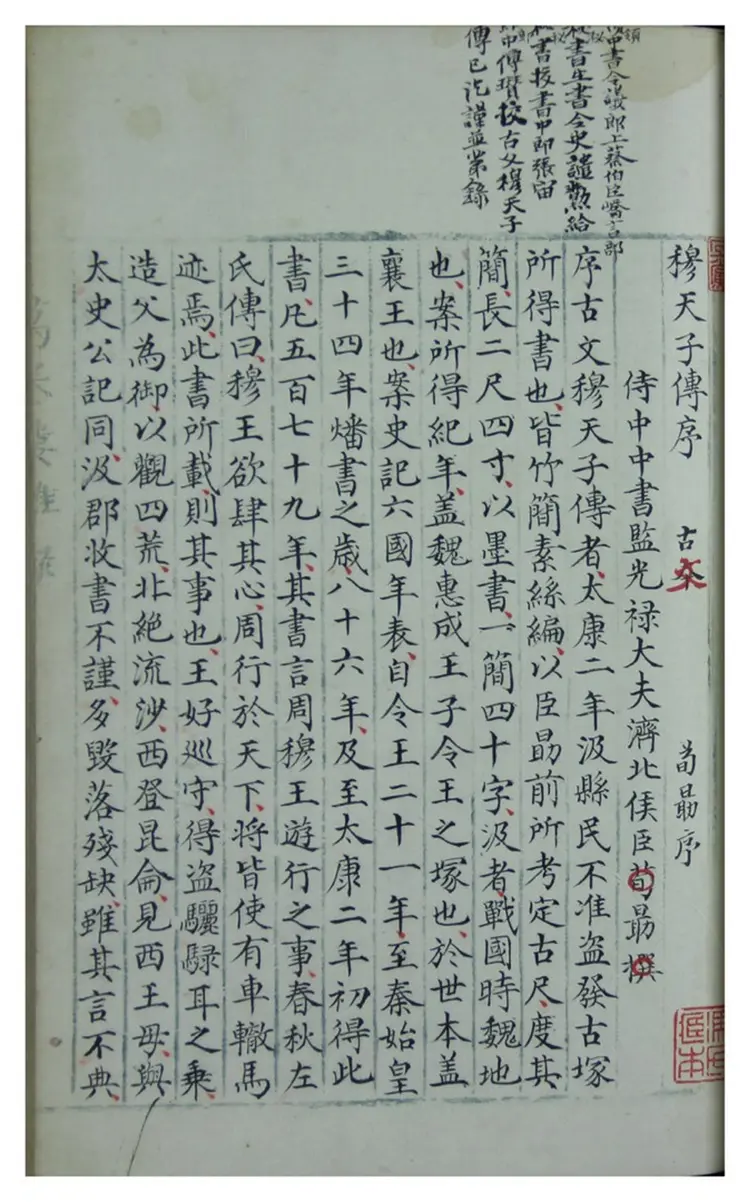 領中書令議郎上蔡伯臣嶠言部
秘書主書令史譴勲給
秘書校書中郎張宙
郎中傅瓚校古文穆天子
傳已訖謹並第錄
穆天子傳序 古文 荀勗序
侍中中書監光祿大夫濟北侯臣荀勗撰
序古文穆天子傳者太康二年汲縣民不准盜發古塚
所得書也皆竹簡素絲編以臣勗前所考定古尺度其
簡長二尺四寸以墨書一簡四十字汲者戰國時魏地
也案所得紀年蓋魏惠成王子令王之塚也於世本蓋
襄王也案史記六國年表自令王二十一年至秦始皇
三十四年燔書之歲八十六年及至太康二年初得此
書凡五百七十九年其書言周穆王遊行之事春秋左
氏傳曰穆王欲肆其心周行於天下將皆使有車轍馬
迹焉此書所載則其事也王好巡守得盜驪騄耳之乗
造父為御以觀四荒北絶流沙西登昆侖見西王母與
太史公記同汲郡收書不謹多毀落殘缺雖其言不典